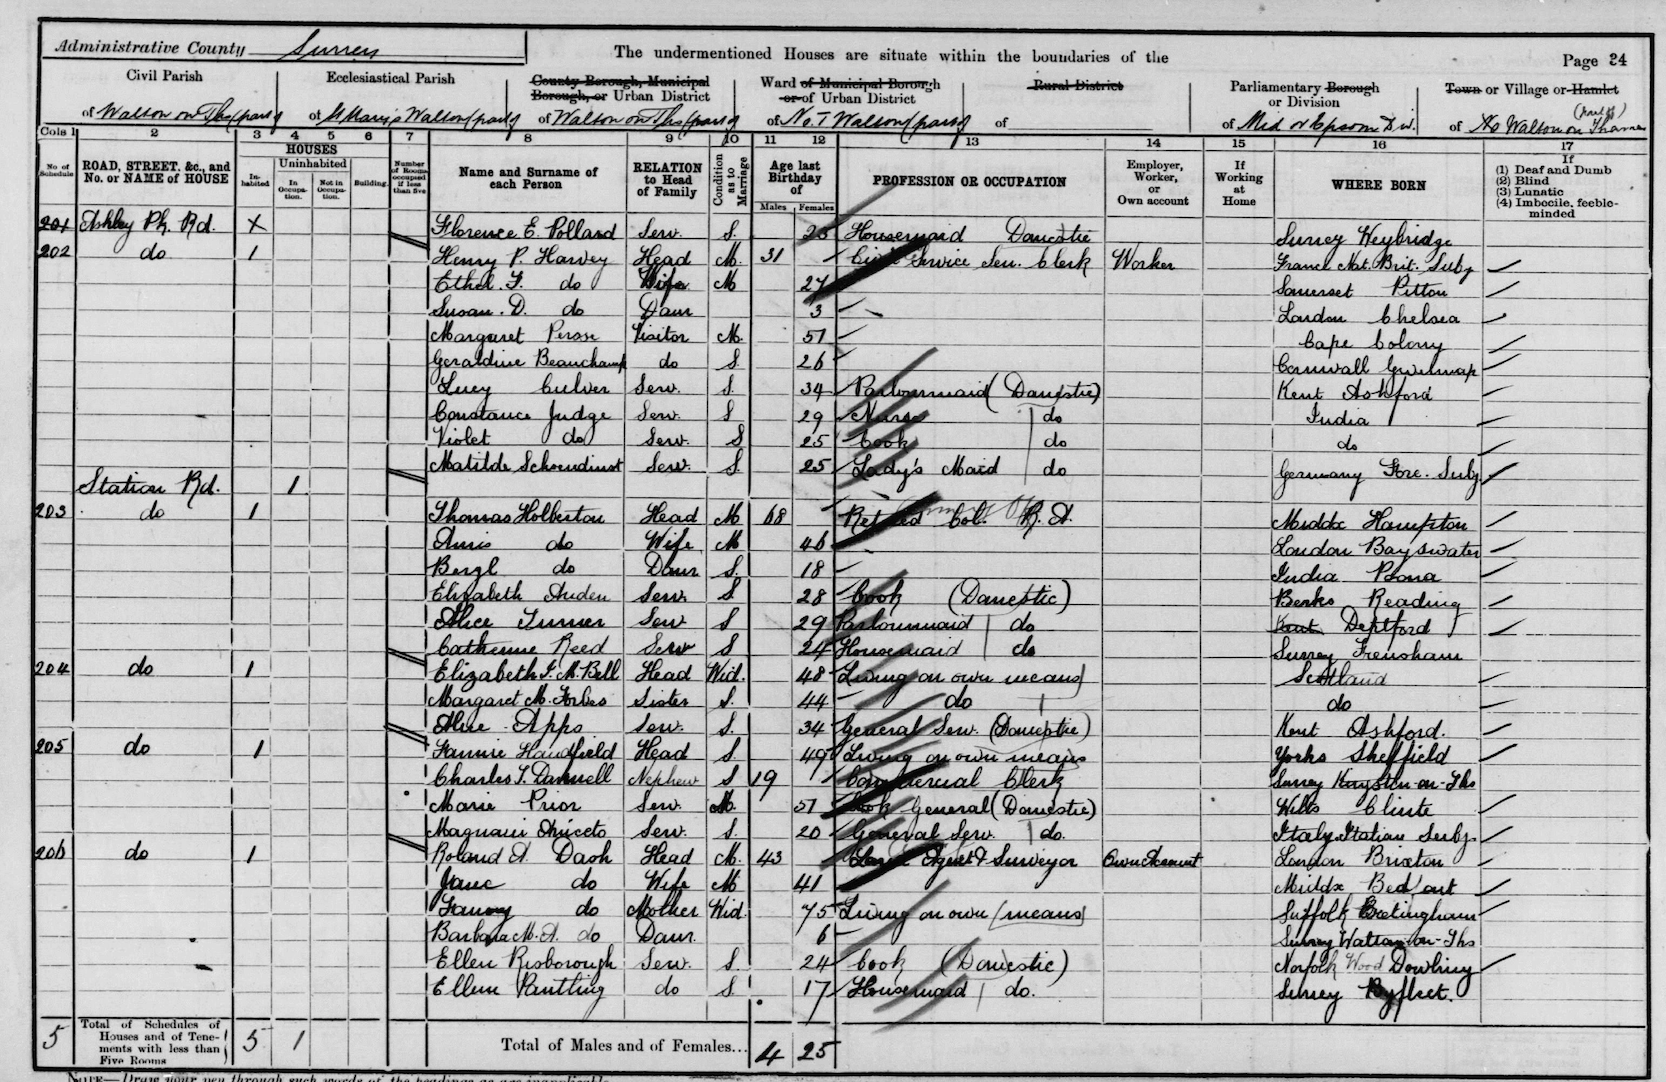 Administrative County Surrey
The undermentioned Houses are situate within the boundaries of the
Page 34
Civil Parish
Ecclesiastical Parish
County Borough, Municipal Borough, or Urban District
Ward of Municipal Borough or of Urban District
Rural District
Parliamentary Borough or Division
Town or Village or Hamlet
of Walton on Ths (part of)
of St Mary's Walton (part of)
of Walton on Ths (part of)
of No. 1 Walton (part of)
of
of Mid or Epsom Div.
of Walton on Thames (part of)
Cols 1 2 3 4 5 6 7 8 9 10 11 12 13 14 15 16 17
No. of Schedule
ROAD, STREET, &c., and No. or NAME of HOUSE
HOUSES
Inhabited
Uninhabited
In Occupation.
Not in Occupation.
Building.
Number of Rooms occupied if less than five
Name and Surname of each Person
RELATION to Head of Family
Condition as to Marriage
Age last Birthday of
Males Females
PROFESSION OR OCCUPATION
Employer, Worker, or Own account
If Working at Home
WHERE BORN
If
(1) Deaf and Dumb
(2) Blind
(3) Lunatic
(4) Imbecile, feeble-minded
201 Ashley Pk. Rd. X Florence E. Pollard Serv. S. 23 Housemaid Domestic Surrey Weybridge
202 do 1 Henry P. Harvey Head M. 31 Civil Service Clerk Worker France Nat. Brit. Subj
Ethel F. do Wife M 27 Somerset Pitton
Susan D. do Daur 3 London Chelsea
Margaret Visitor M. 51 Cape Colony
Geraldine Beauchamp do S 26 Cornwall Gwennap
Lucy Culver Serv. S 34 Parlourmaid (Domestic) Kent Ashford
Constance Judge Serv. S 29 Nurse do India
Violet do Serv. S 25 Cook do do
Matilde Schoendinst Serv. S 25 Lady's Maid do Germany Fore. Subj.
Station Rd. 1
203 do 1 Thomas Holberton Head M 68 Retired Col. R. A. Middx Hampton
Annis do Wife M 46 London Bayswater
Beryl do Daur S. 18 India Poona
Elizabeth Auden Serv. S 28 Cook (Domestic) Berks Reading
Alice Turner Serv S 29 Parlourmaid do Kent Deptford
Catherine Reed Serv S 24 Housemaid do Surrey Frensham
204 do 1 Elizabeth F. M. Bell Head Wid. 48 Living on own means Scotland
Margaret M. Forbes Sister S. 44 do do
Alice Apps Serv. S. 34 General Serv. (Domestic) Kent Ashford.
205 do 1 Fannie Handfield Head S 49 Living on own means Yorks Sheffield
Charles T. Nephew S 19 Commercial Clerk Surrey Kingston-on-Ths
Marie Prior Serv. M. 51 Cook General (Domestic) Wilts
Serv. S. 20 General Serv. do. Italy Italian Subj
206 do 1 Roland A. Dash Head M. 43 Agent & Surveyor Own Account London Brixton
Jane do Wife M 41 Middx Bedfont
Fanny do Mother Wid. 75 Living on own means Suffolk
Barbara M. A. do Daur. 6 Surrey Walton-on-Ths
Ellen Risborough Serv. S. 24 Cook (Domestic) Norfolk Wood Dowling
Ellen Pantling do S. 17 Housemaid do. Surrey Byfleet.
5 Total of Schedules of Houses and of Tenements with less than Five Rooms 5 1 Total of Males and of Females... 4 25
NOTE—Draw your pen through such words of the headings as are inapplicable.